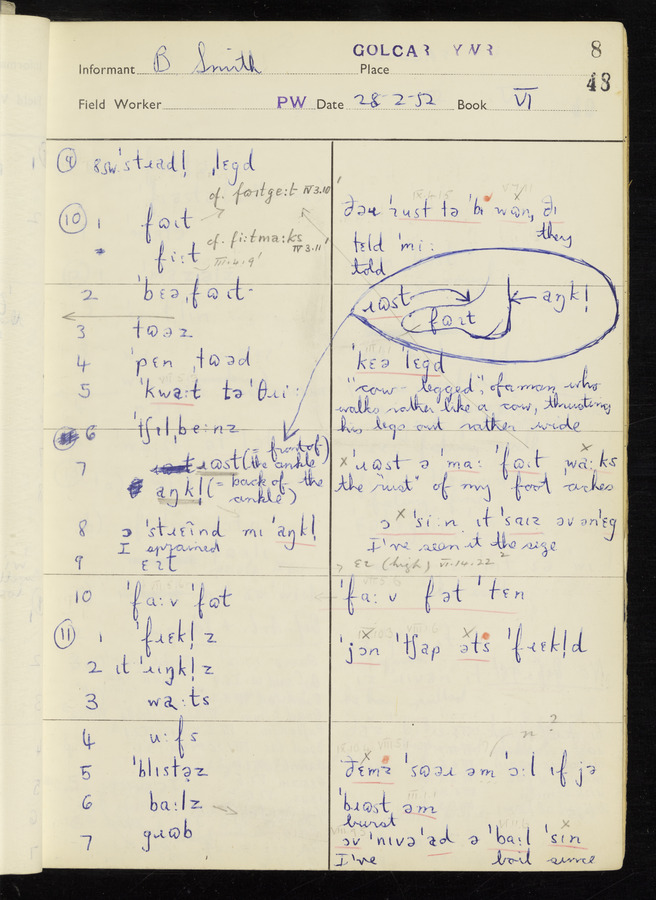 GOLCAR YWR 8
Informant B Smith Place 43
Field Worker PW Date 28-2-52 Book VI
⑨ 8sw. 'stɹadḷ ˌlɛgd
cf. fɷɪtgeːt IV 3.10
⑩ 1 fɷɪt
cf. fiːtmaːks IV 3.11
fiːt
2 'bɛəˌfɷɪt
3 tɷəz
4 'pɛn ˌtɷəd
5 'kwaːt tə 'θɹiː
6 'ʧɪlˌbeːnz
7 ɹɷst (= front of the ankle)
aŋkḷ (= back of the ankle)
8 ɔ 'stɹɛɪnd mɪ 'aŋkḷ
I sprained
9 ɛɪt
10 'faːv 'fɷt
⑪ 1 'fɹɛkḷz
2 ɪt 'ɹɪŋkḷz
3 waːts
4 uːfs
5 'blɪstəz
6 baːlz
7 gɹɷb
ðəɹ 'ɹust tə 'bɪ wɷn, ðɪ
they
tɛld 'miː
told
ɹɷst aŋkḷ
fɷɪt
'kɛə 'lɛgd
"cow-legged", of a man who
walks rather like a cow, thrusting
his legs out rather wide
'ɹɷst ə 'maː 'fɷɪt waːks
the "rust" of my foot aches
ɔ 'siːn ɪt 'saɪz əv ən'ɛg
I've seen it the size
ɛɪ (high) VI.14.22
'faːv fət 'tɛn
'jɔn 'ʧap əts 'fɹɛkḷd
n ?
'ðɛmz 'sɷəɹ əm 'ɔːl ɪf jə
'bɹɷst əm
burst
ɔv 'nɪvə 'ad ə 'baːl 'sɪn
I've boil since